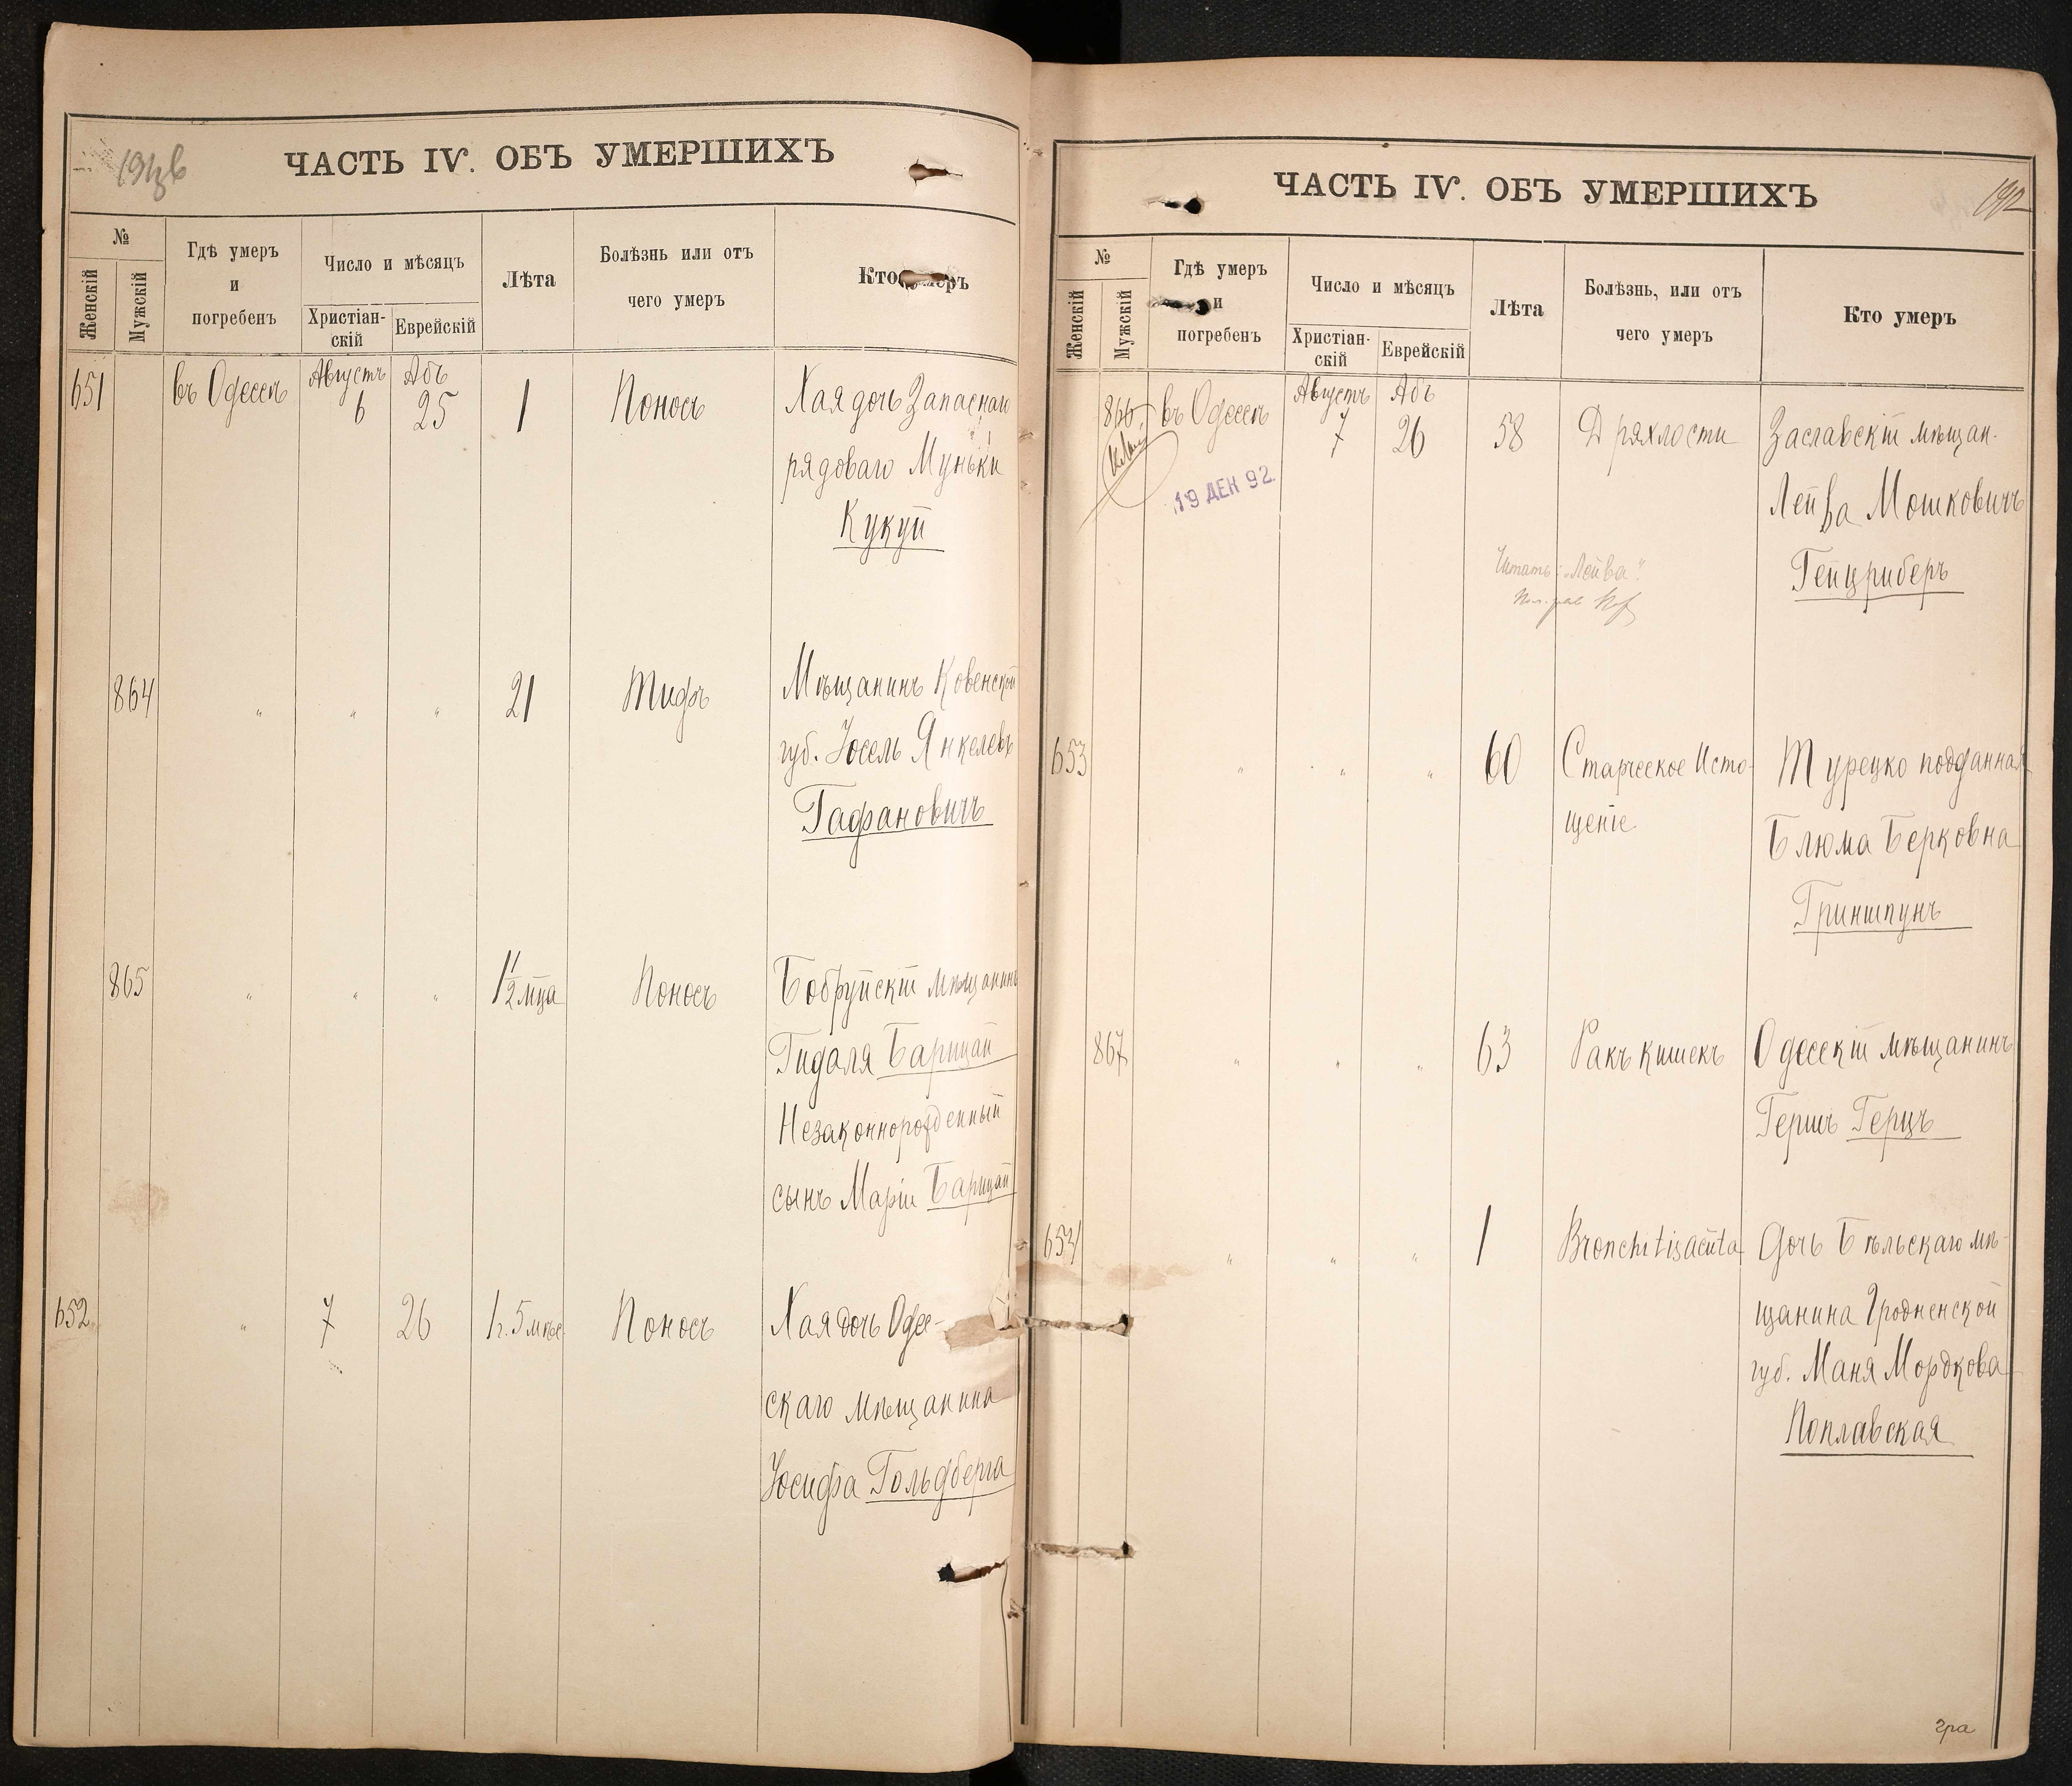 ЧАСТЬ IV. ОБЪ УМЕРШИХЪ
№
Женскій
Мужскій
Гдѣ умеръ
и
погребенъ
Число и мѣсяцъ
Христіан-
скій
Еврейскій
Лѣта
Болѣзнь или отъ
чего умеръ
Кто умеръ
651 въ Одессѣ Августъ 6 Абъ 25 1 Поносъ Хая дочь Запаснаго
рядоваго Муньки
Кукуй
864 " " " 21 Тифъ Мѣщанинъ Ковенской
губ. Іосель Янкелевъ
Гафановичъ
865 " " " 1 1/2 мца Поносъ Бобруйскій мѣщанинъ
Гидаля Барицай
Незаконнорожденный
сынъ Маріи Барицай
652 " 7 26 1 г. 5 мѣс. Поносъ Хая дочь Одес-
скаго мѣщанина
Іосифа Гольдберга
ЧАСТЬ IV. ОБЪ УМЕРШИХЪ
192
№
Женскій
Мужскій
Гдѣ умеръ
и
погребенъ
Число и мѣсяцъ
Христіан-
скій
Еврейскій
Лѣта
Болѣзнь, или отъ
чего умеръ
Кто умеръ
866 въ Одессѣ Августъ 7 Абъ 26 58 Дряхлости Заславскій мѣщан.
19 ДЕК 92
Лейва Мошковичъ
Читать: "Лейва".
Гейцриберъ
653 " " " 60 Старческое Исто-
щеніе
Турецко подданная
Блюма Берковна
Гриншпунъ
867 " " " 63 Ракъ кишекъ Одесскій мѣщанинъ
Гершъ Герцъ
654 " " " 1 Bronchitis acuta Дочь Бѣльскаго мѣ-
щанина Гродненской
губ. Маня Мордкова
Поплавская
гра